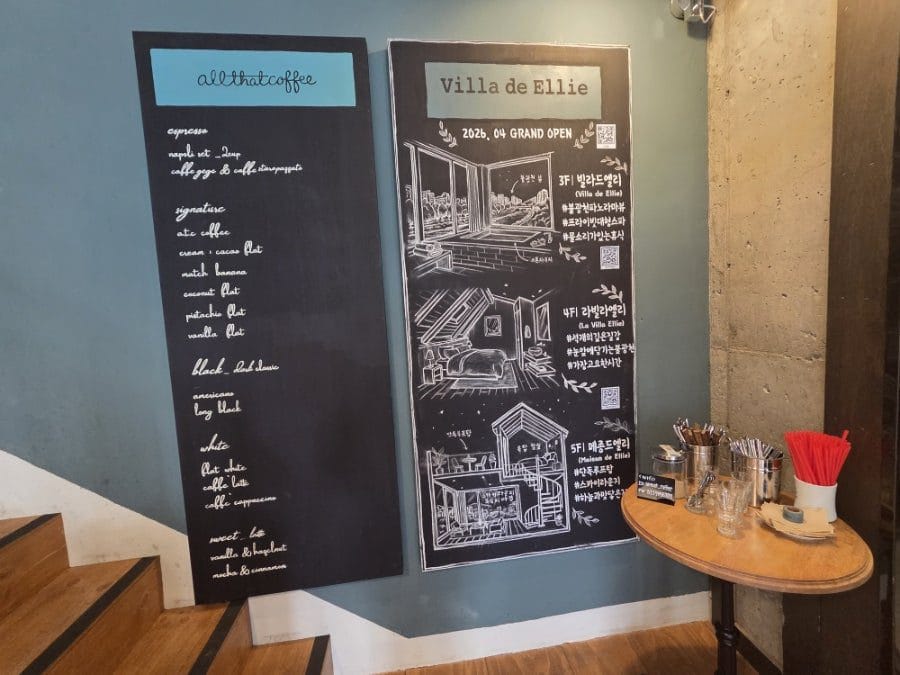 allthatcoffee
espresso
napoli set _2cup
caffe gego & caffe
signature
a.t.c coffee
cream : cacao flat
match banana
coconut flat
pistachio flat
vanilla flat
black_ dark classic
americano
long black
white
flat white
caffe latte
caffe cappuccino
sweet_ latte
vanilla & hazelnut
mocha & cinnamon
Villa de Ellie
2026, 04 GRAND OPEN
불광천 뷰
3F| 빌라드엘리
(Villa de Ellie)
#불광천파노라마뷰
#프라이빗대형스파
#물소리가있는휴식
4F| 라빌라엘리
(La Villa Ellie)
#석개의깊은침강
#눈앞에닿가는불광천
#가장고요한시간
단독루프탑
복층 침실
5F| 메종드엘리
(Maison de Ellie)
#단독루프탑
#스카이라운지
#하늘과맞닿은